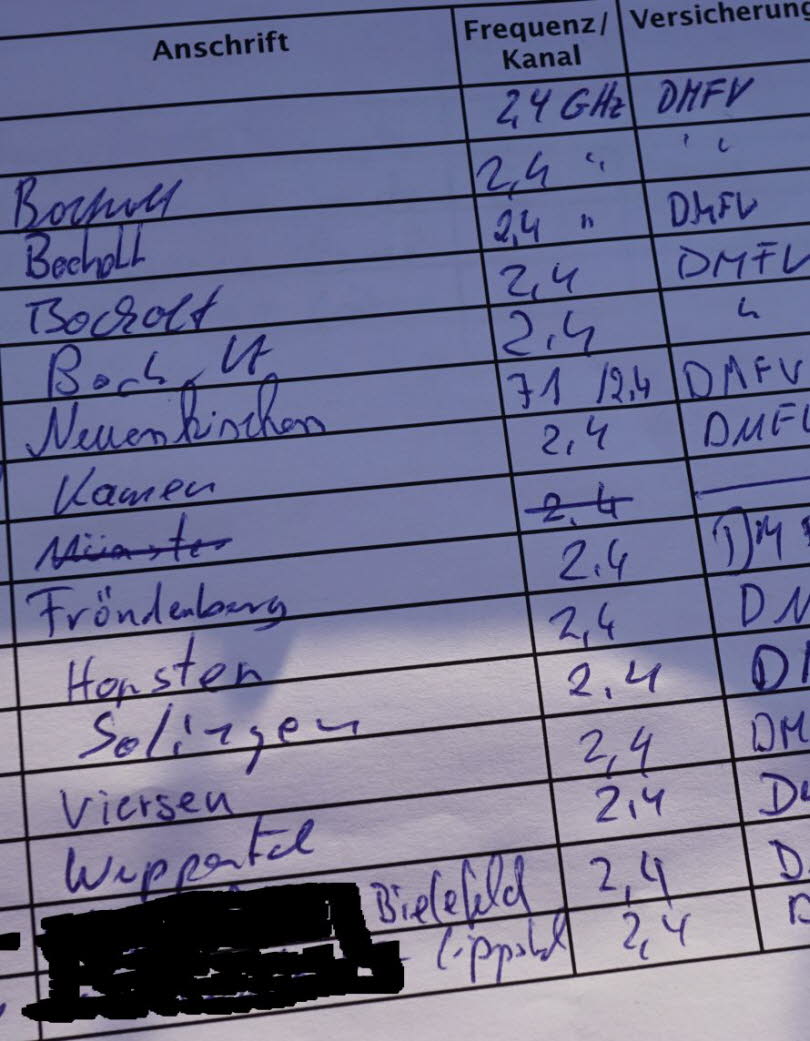 Anschrift Frequenz/ Kanal Versicherung
2,4 GHz DMFV
Bocholt 2,4 " " "
Bocholt 2,4 " DMFV
Bocholt 2,4 DMFV
Bocholt 2,4 "
Neuenkirchen 71 /2,4 DMFV
Kamen 2,4 DMFV
Münster 2.4
Fröndenberg 2.4 DM
2,4 DM
Solingen 2.4 D
Viersen 2,4 DM
Wuppertal 2,4 D
Bielefeld 2,4 D
Lippstadt 2,4 D